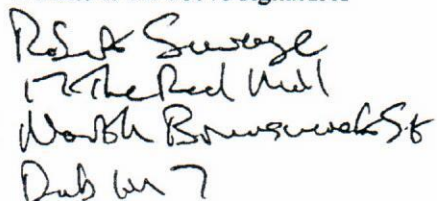 Robert Savage
17 The Red Mill
North Brunswick St
Dublin 7